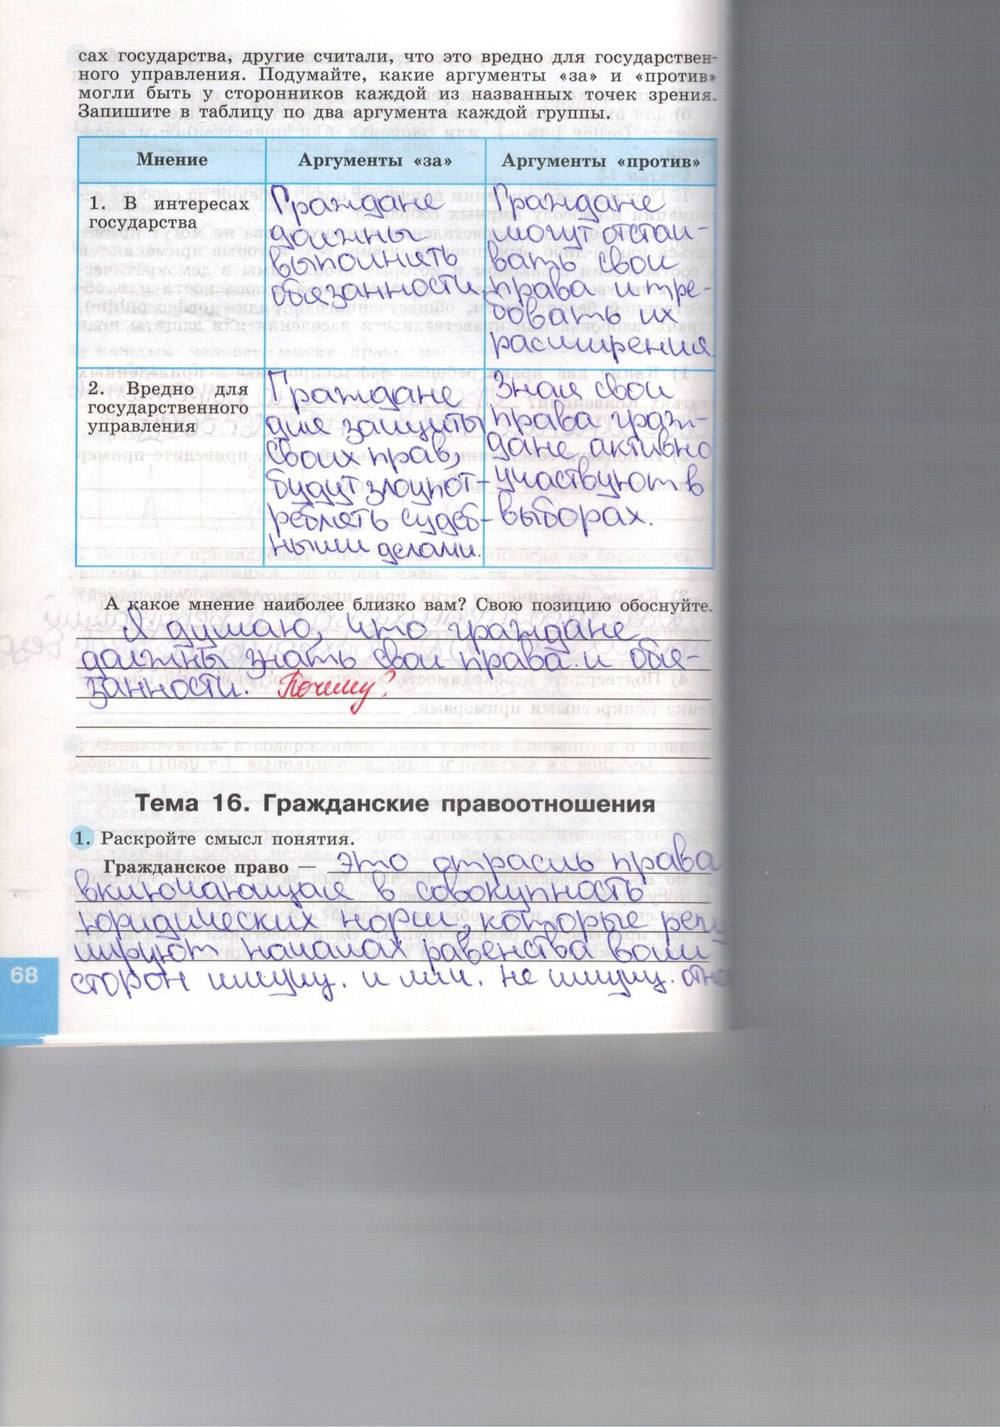 сах государства, другие считали, что это вредно для государствен-
ного управления. Подумайте, какие аргументы «за» и «против»
могли быть у сторонников каждой из названных точек зрения.
Запишите в таблицу по два аргумента каждой группы.
Мнение
Аргументы «за»
Аргументы «против»
1. В интересах
государства
Граждане
должны
выполнять
обязанности.
Граждане
могут отстаи-
вать свои
права и тре-
бовать их
расширения.
2. Вредно для
государственного
управления
Граждане
для защиты
своих прав,
будут злоупот-
реблять судеб-
ными делами.
Зная свои
права граж-
дане активно
участвуют в
выборах.
А какое мнение наиболее близко вам? Свою позицию обоснуйте.
Я думаю, что граждане
должны знать свои права и обя-
занности. Почему?
Тема 16. Гражданские правоотношения
1. Раскройте смысл понятия.
Гражданское право — это отрасль права
включающая в совокупность
юридических норм, которые регу
лируют началах равенства воли
сторон имущ. и лич. не имущ. отно
68